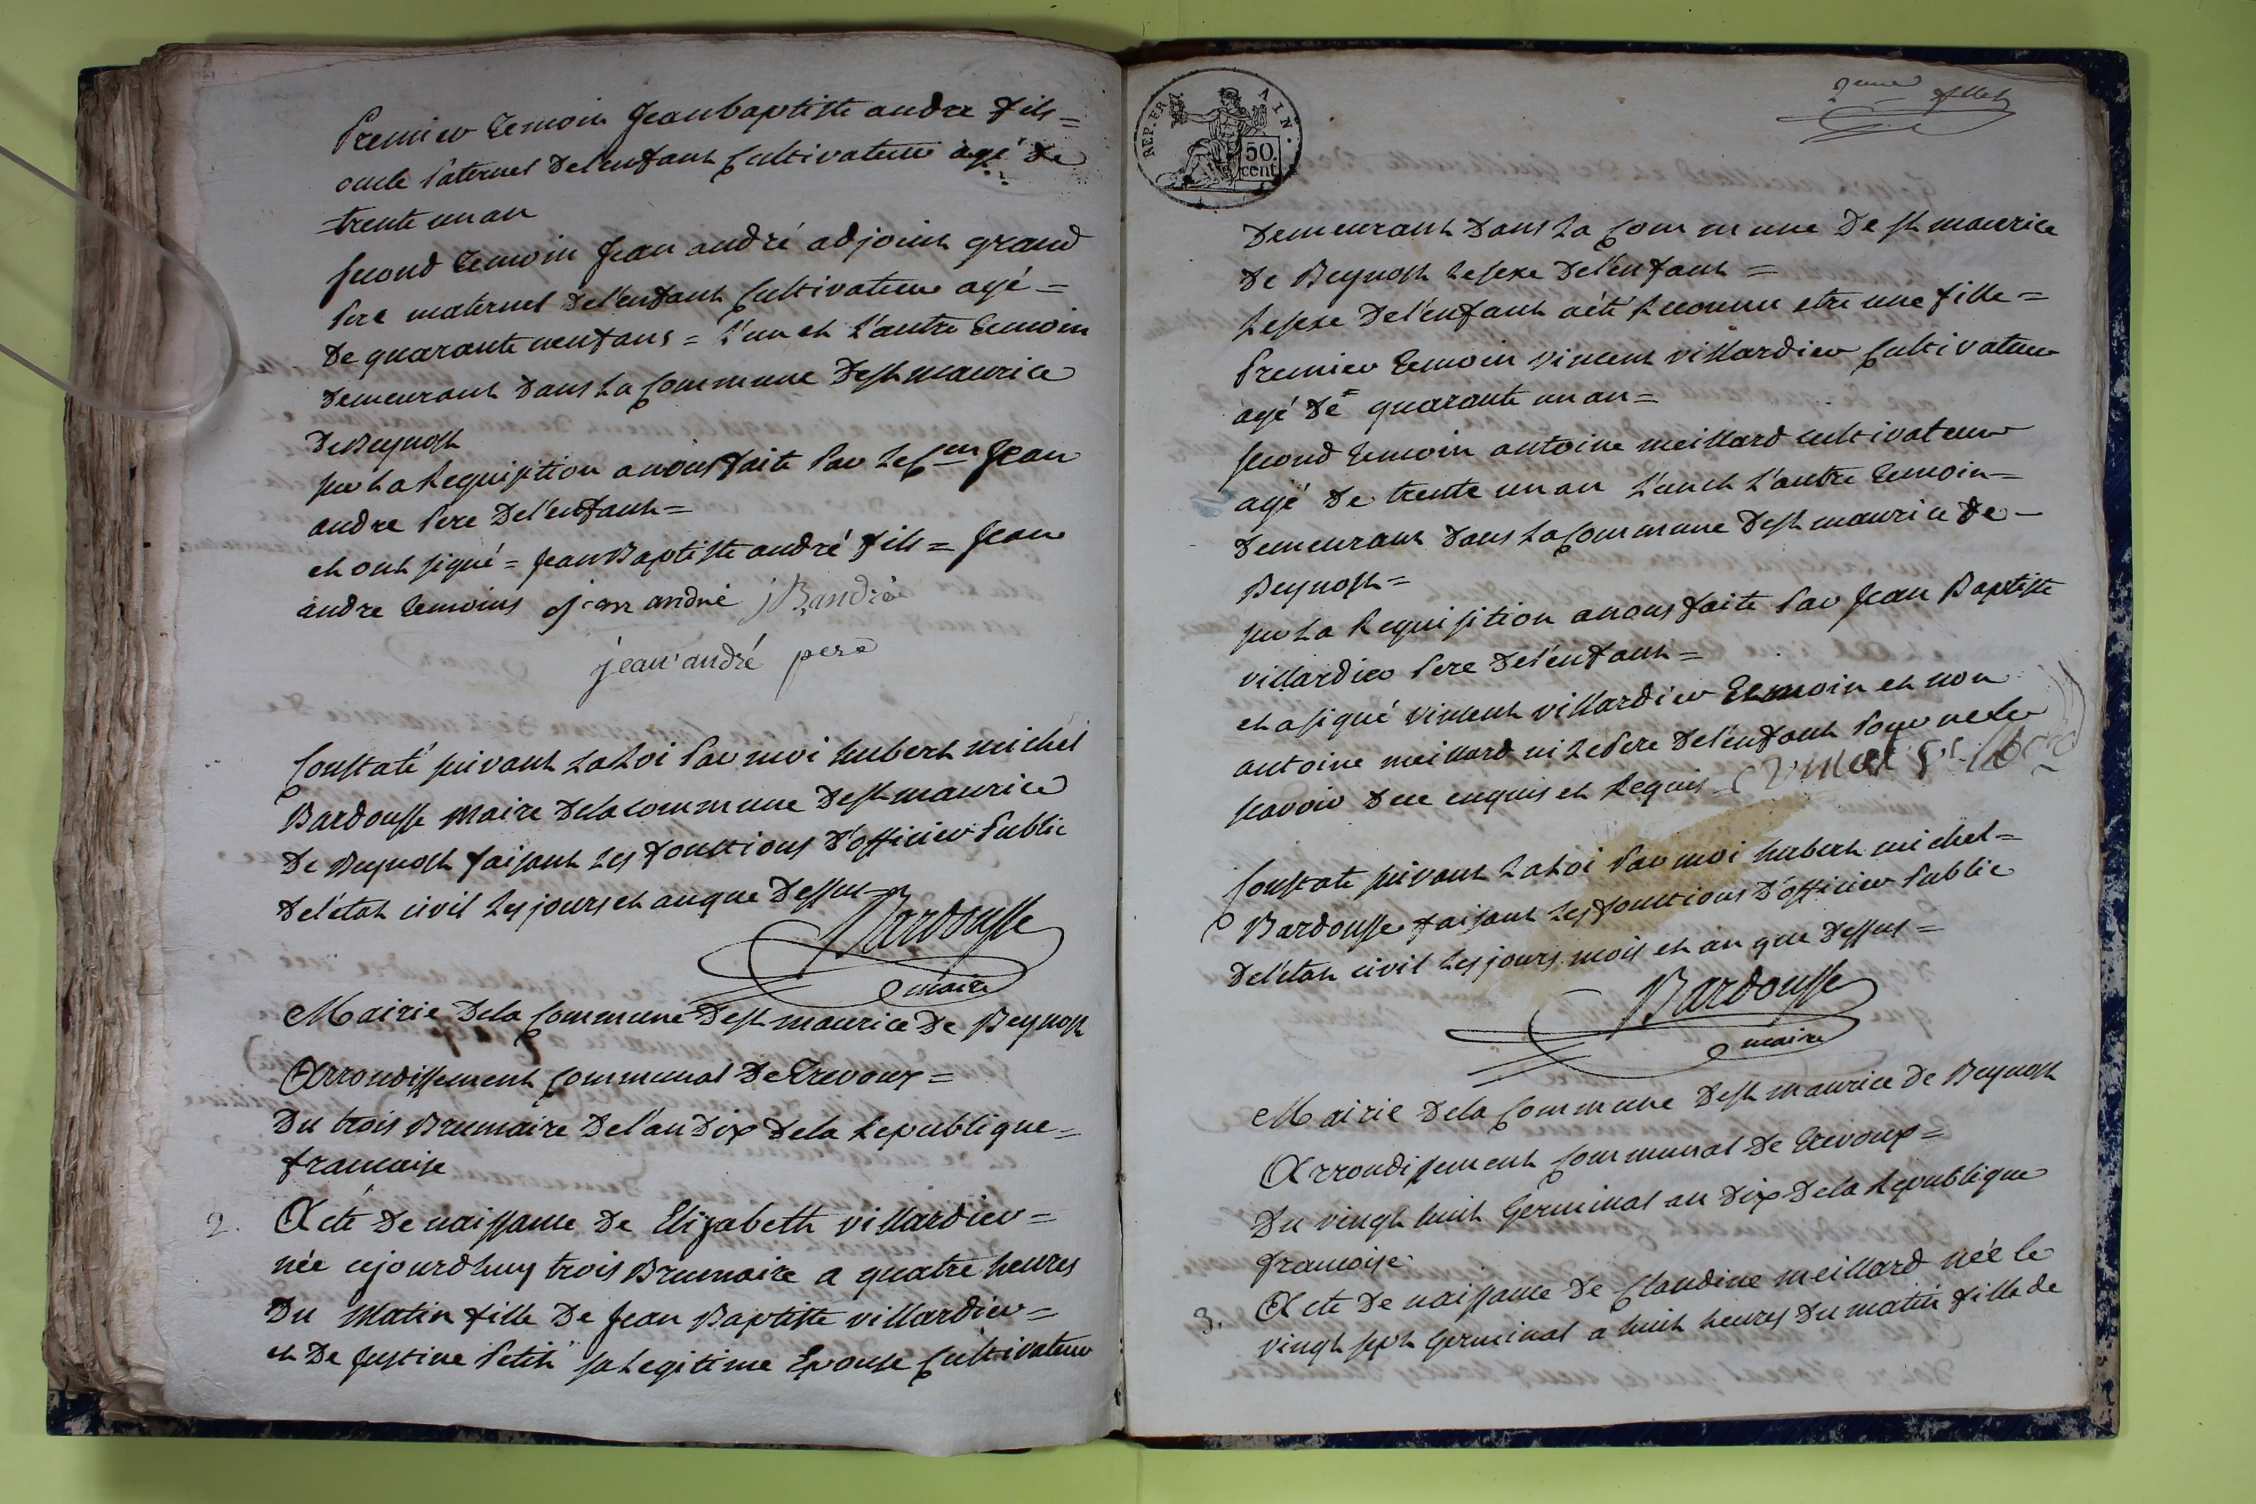 Premier temoin Jean baptiste andre fils =
oncle paternel de l'enfant Cultivateur agé de
trente un an
second temoin Jean andré adjoint grand
pere maternel de l'enfant Cultivateur agé =
de quarante neuf ans = l'un et l'autre temoin
demeurant dans la Commune de st maurice
de Beynost
sur la Requisition a nous faite par le Cen Jean
andre pere de l'enfant =
et ont signé = Jean Baptiste andré fils = Jean
andre temoins jean andré JB andré
jean andré pere
Constaté suivant la loi par moi hubert michel
Bardousse maire de la commune de st maurice
de Beynost faisant les fonctions d'officier public
de l'état civil les jours et an que dessus
Bardousse
maire
Mairie de la Commune de st maurice de Beynost
Arrondissement Communal de Trevoux =
du trois Brumaire de l'an dix de la Republique =
francaise
2. Acte de naissance de Elizabeth villardier =
née cejourdhuy trois Brumaire a quatre heures
du matin fille de Jean Baptiste villardier =
et de Justine petit sa legitime Epouse Cultivateur
REP. FRA AIN.
50 cent
2eme fllet
demeurant dans la Commune de st maurice
de Beynost le sexe de l'enfant =
le sexe de l'enfant a été Reconnu etre une fille =
Premier temoin vincent villardier Cultivateur
agé de quarante un an =
second temoin antoine meillard cultivateur
agé de trente un an l'un et l'autre temoin =
demeurant dans la Commune de st maurice de =
Beynost =
sur la Requisition a nous faite par Jean Baptiste
villardier pere de l'enfant =
et a signé vincent villardier temoin et non
antoine meillard ni le pere de l'enfant pour ne le
scavoir de ce enquis et Requis
Constaté suivant la loi par moi hubert michel =
Bardousse faisant les fonctions d'officier public
de l'état civil les jours mois et an que dessus =
Bardousse
maire
Mairie de la Commune de st maurice de Beynost
Arrondissement Communal de Trevoux =
du vingt huit Germinal an dix de la Republique
francoise
3. Acte de naissance de Claudine meillard née le
vingt sept Germinal a huit heures du matin fille de